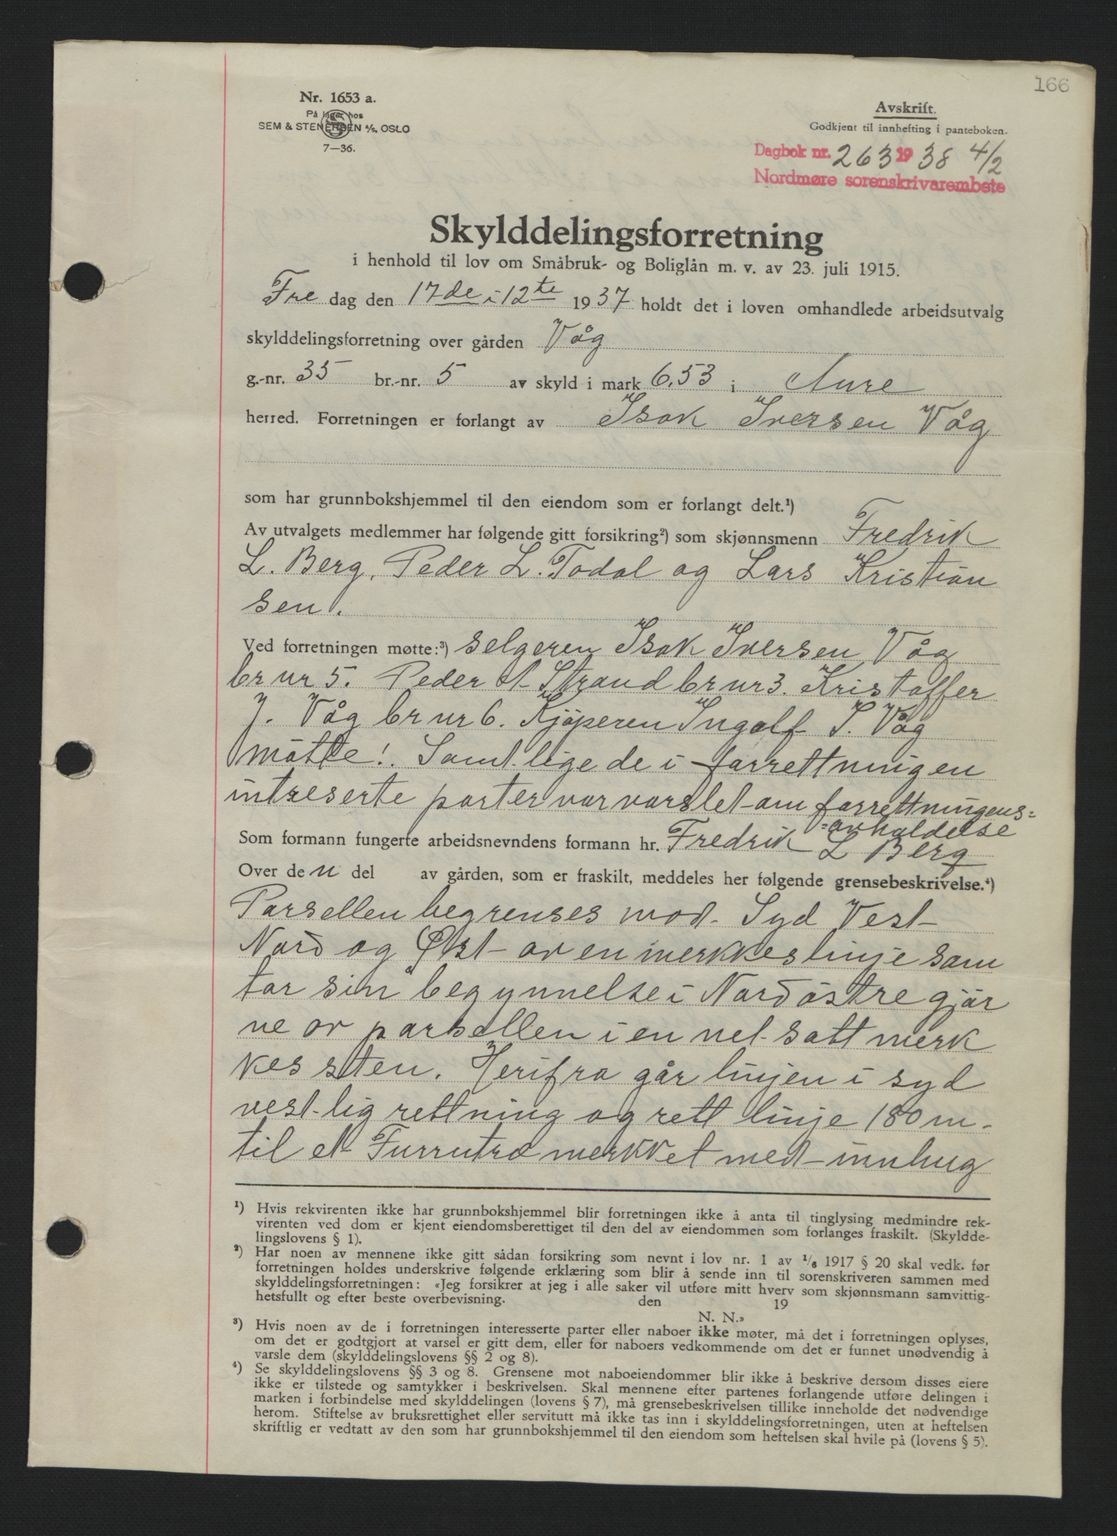 166
Nr. 1653 a.
På lager hos
SEM & STENERSEN A/S, OSLO
7—36.
Avskrift.
Godkjent til innhefting i panteboken.
Dagbok nr. 263 1938 4/2
Nordmøre sorenskrivarembete
Skylddelingsforretning
i henhold til lov om Småbruk- og Boliglån m. v. av 23. juli 1915.
Fre dag den 17de i 12te 1937 holdt det i loven omhandlede arbeidsutvalg
skylddelingsforretning over gården Våg
g.-nr. 35 br.-nr. 5 av skyld i mark 6,53 i Aure
herred. Forretningen er forlangt av Isak Iversen Våg
som har grunnbokshjemmel til den eiendom som er forlangt delt.¹)
Av utvalgets medlemmer har følgende gitt forsikring²) som skjønnsmenn Fredrik
L. Berg, Peder L. Todal og Lars Kristian
sen.
Ved forretningen møtte:³) selgeren Isak Iversen Våg
br nr 5. Peder A Strand br nr 3. Kristoffer
J. Våg br nr 6. Kjøperen Ingolf I. Våg
møtte!. Samtlige de i forrettningen
intreserte parter var varslet om forrettningens=
=avholdelse
Som formann fungerte arbeidsnevndens formann hr. Fredrik L Berg
Over den del av gården, som er fraskilt, meddeles her følgende grensebeskrivelse.⁴)
Parsellen begrenses mod Syd Vest
Nord og Øst av en merkkeslinje som
tar sin begynnelse i Nordøstre gjør
ne av parsellen i en nel satt merk
kessten. Herifra går linjen i syd
vestlig rettning og rett linje 180 m.
til et Furrutræ merkket med innhug
¹) Hvis rekvirenten ikke har grunnbokshjemmel blir forretningen ikke å anta til tinglysing medmindre rek-
virenten ved dom er kjent eiendomsberettiget til den del av eiendommen som forlanges fraskilt. (Skyldde-
lingslovens § 1).
²) Har noen av mennene ikke gitt sådan forsikring som nevnt i lov nr. 1 av 1/6 1917 § 20 skal vedk. før
forretningen holdes underskrive følgende erklæring som blir å sende inn til sorenskriveren sammen med
skylddelingsforretningen: «Jeg forsikrer at jeg i alle saker vil utføre mitt hverv som skjønnsmann samvittig-
hetsfullt og efter beste overbevisning. den 19
N. N.»
³) Hvis noen av de i forretningen interesserte parter eller naboer ikke møter, må det i forretningen oplyses,
om det er godtgjort at varsel er gitt dem, eller for naboers vedkommende om det er funnet unødvendig å
varsle dem (skylddelingslovens §§ 2 og 8).
⁴) Se skylddelingslovens §§ 3 og 8. Grensene mot naboeiendommer blir ikke å beskrive dersom disses eiere
ikke er tilstede og samtykker i beskrivelsen. Skal mennene efter partenes forlangende utføre delingen i
marken i forbindelse med skylddelingen (lovens § 7), må grensebeskrivelsen tillike inneholde det nødvendige
herom. Stiftelse av bruksrettighet eller servitutt må ikke tas inn i skylddelingsforretningen, uten at heftelsen
skriftlig er vedtatt av den som har grunnbokshjemmel til den eiendom som heftelsen skal hvile på (lovens § 5).